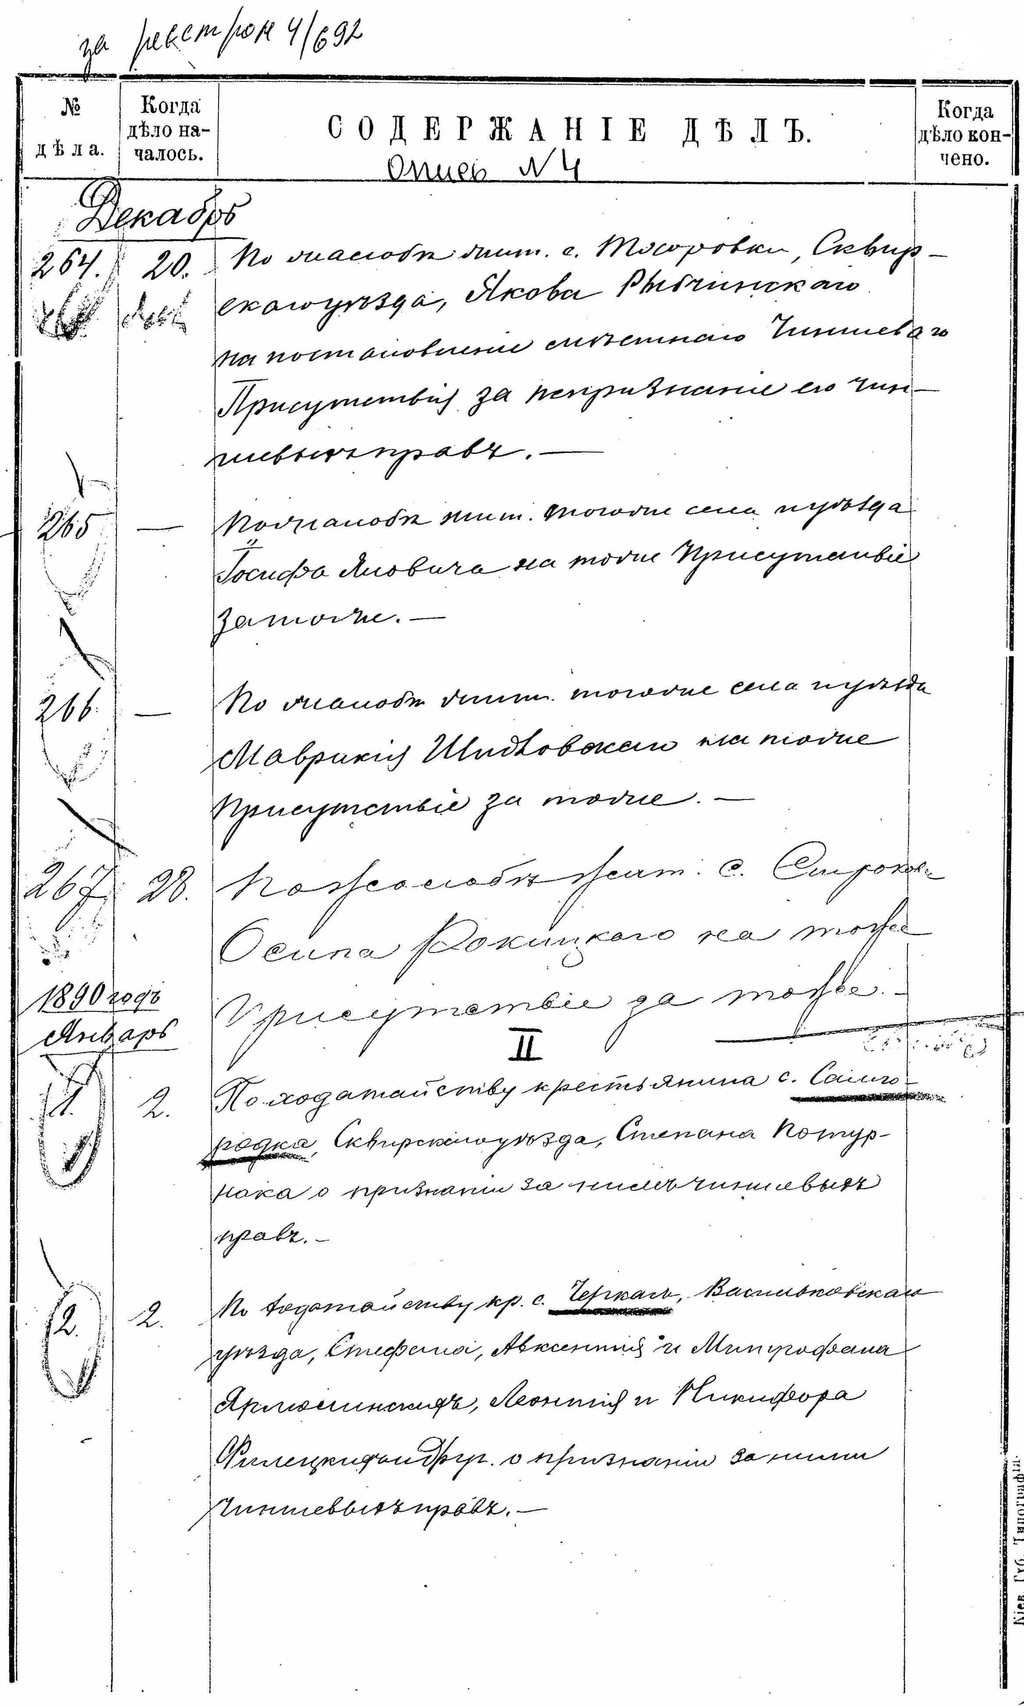 за реестром 4/692
№ дѣла.
Когда дѣло началось.
СОДЕРЖАНІЕ ДѢЛЪ.
Когда дѣло кончено.
Опись N 4
Декабрь
264. 20. По жалобѣ жит. с. Токаровки, Сквир-
скаго уѣзда, Якова Рыбчинскаго
на постановленіе мѣстнаго Чиншеваго
Присутствія за непризнаніе его чин-
шевыхъ правъ. —
265 — По жалобѣ жит. того же села и уѣзда
Іосифа Яновича на тоже Присутствіе
за тоже. —
266. — По жалобѣ жит. того же села и уѣзда
Маврикія на тоже
Присутствіе за тоже. —
267. 28. По жалобѣ жит. с.
Осипа Рокицкаго на тоже
Присутствіе за тоже. —
1890 годъ
Январь
II
1. 2. По ходатайству крестьянина с. Самго-
родка, Сквирскаго уѣзда, Степана Котур-
нака о признаніи за нимъ чиншевыхъ
правъ. —
2. 2. По ходатайству кр. с. Черкасъ, Васильковскаго
уѣзда, Стефана, Авксентія и Митрофана
Ярмолинскихъ, Леонтія и Никифора
Филецкихъ и др. о признаніи за ними
чиншевыхъ правъ. —
Кіев. Губ. Типографія.